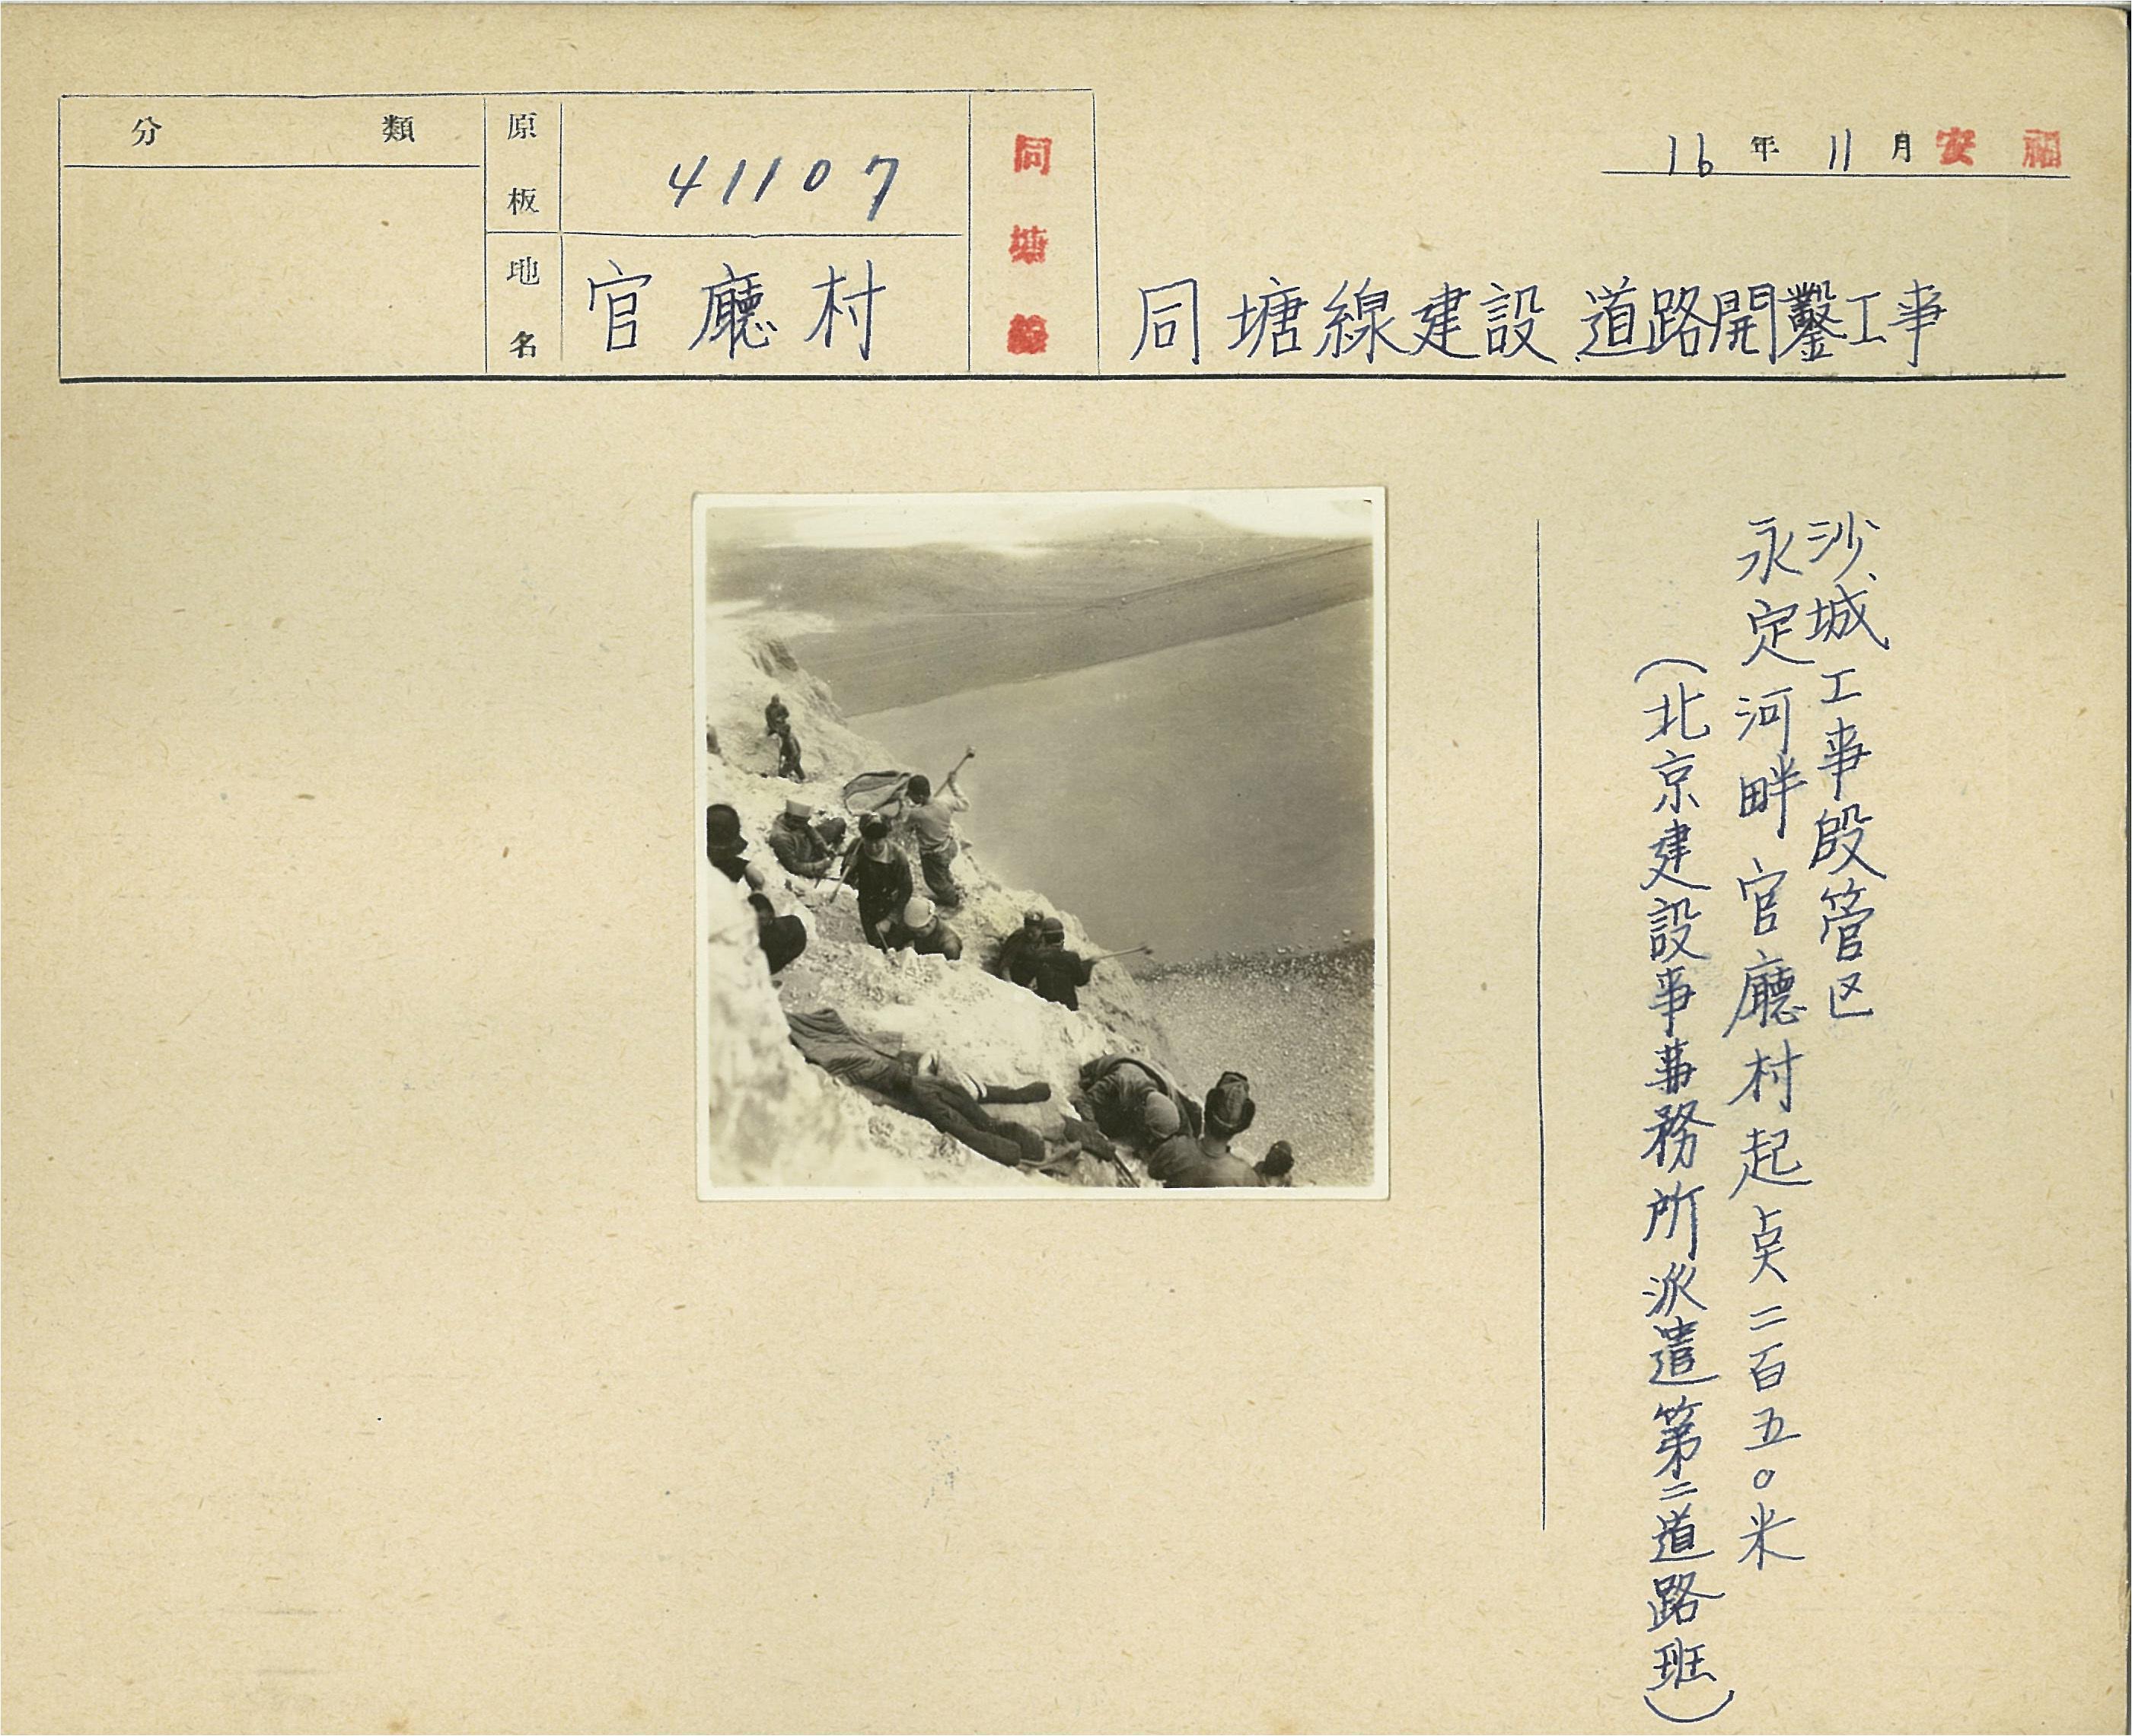 分類
原板
41107
地名
官廳村
同塘線
16年11月 安福
同塘線建設 道路開鑿工事
沙城工事段管区
永定河畔官廳村起点二百五〇米
(北京建設事事務所派遣第二道路班)